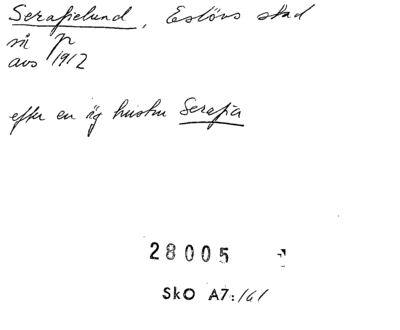 Serafielund, Eslövs stad
nr p
avs 1912
efter en äg hustru Serafia
28005
SkO A7:161